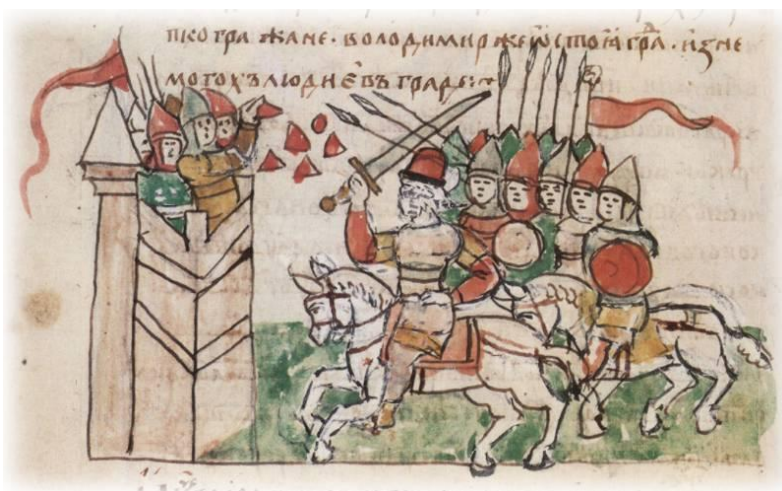 пко гра жане · володимиржеѿстоꙗгра̑ · иꙁне
могохълюдиєвъградѣ